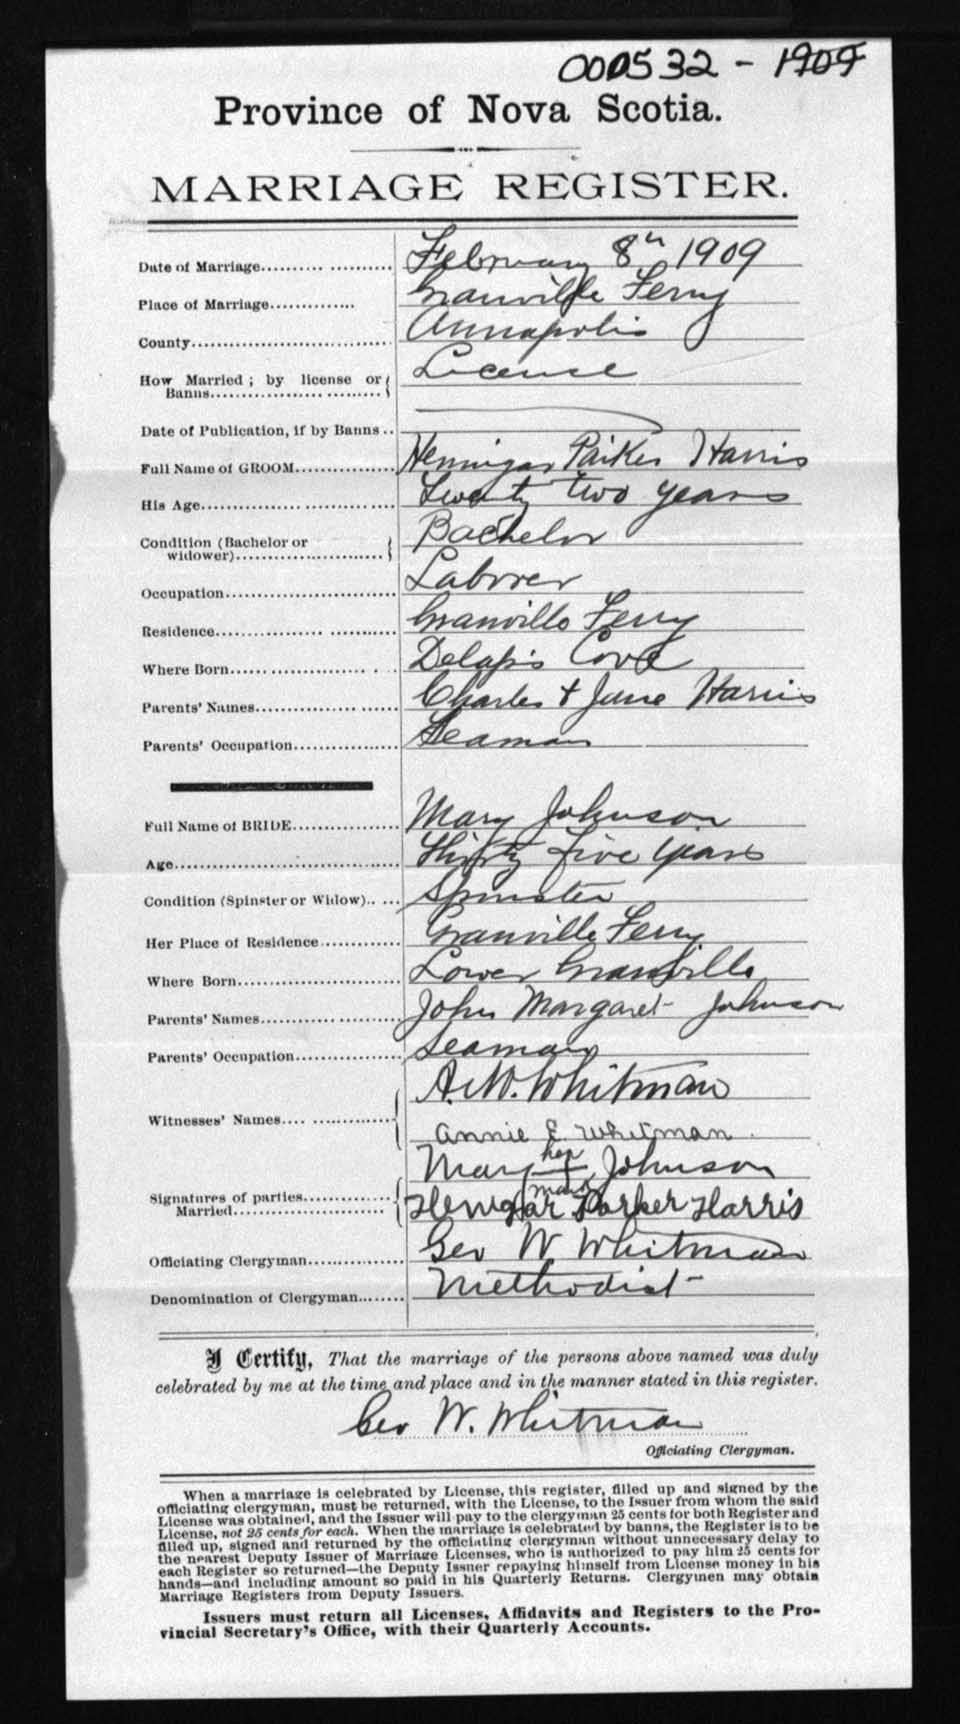 000532 - 1909
Province of Nova Scotia.
MARRIAGE REGISTER.
Date of Marriage.......... February 8th 1909
Place of Marriage............. Granville Ferry
County.............................. Annapolis
How Married ; by license or License
Banns..............................
Date of Publication, if by Banns..
Full Name of GROOM............... Hennigar Parker Harris
His Age............................ Twenty two years
Condition (Bachelor or Bachelor
widower)......................
Occupation.......................... Laborer
Residence........................... Granville Ferry
Where Born....................... Delap's Cove
Parents' Names.................... Charles + Jane Harris
Parents' Occupation................ Seaman
Full Name of BRIDE................. Mary Johnson
Age.................................... Thirty five years
Condition (Spinster or Widow)..... Spinster
Her Place of Residence............ Granville Ferry
Where Born......................... Lower Granville
Parents' Names.................... John Margaret Johnson
Parents' Occupation............... Seaman
A. W. Whitman
Witnesses' Names...................
Annie E. Whitman
her
Mary Johnson
mark
Signatures of parties.............. Henigar Parker Harris
Married.......................
Officiating Clergyman............... Geo W Whitman
Denomination of Clergyman........ Methodist
I Certify, That the marriage of the persons above named was duly
celebrated by me at the time and place and in the manner stated in this register.
Geo W. Whitman
Officiating Clergyman.
When a marriage is celebrated by License, this register, filled up and signed by the
officiating clergyman, must be returned, with the License, to the Issuer from whom the said
License was obtained, and the Issuer will pay to the clergyman 25 cents for both Register and
License, not 25 cents for each. When the marriage is celebrated by banns, the Register is to be
filled up, signed and returned by the officiating clergyman without unnecessary delay to
the nearest Deputy Issuer of Marriage Licenses, who is authorized to pay him 25 cents for
each Register so returned—the Deputy Issuer repaying himself from License money in his
hands—and including amount so paid in his Quarterly Returns. Clergymen may obtain
Marriage Registers from Deputy Issuers.
Issuers must return all Licenses, Affidavits and Registers to the Pro-
vincial Secretary's Office, with their Quarterly Accounts.